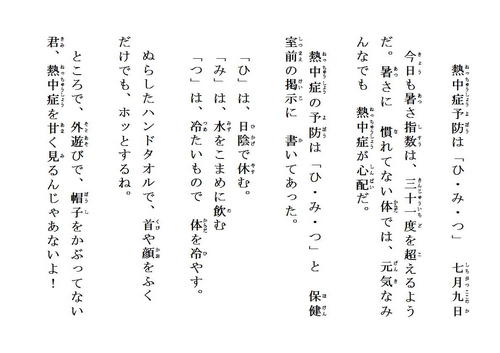 熱中症予防は「ひ・み・つ」　七月九日
今日も暑さ指数は、三十一度を超えるよう
だ。暑さに　慣れてない体では、元気なみ
んなでも　熱中症が心配だ。
熱中症の予防は「ひ・み・つ」と　保健
室前の掲示に　書いてあった。
「ひ」は、日陰で休む。
「み」は、水をこまめに飲む
「つ」は、冷たいもので　体を冷やす。
ぬらしたハンドタオルで、首や顔をふく
だけでも、ホッとするね。
ところで、外遊びで、帽子をかぶってない
君、熱中症を甘く見るんじゃあないよ！